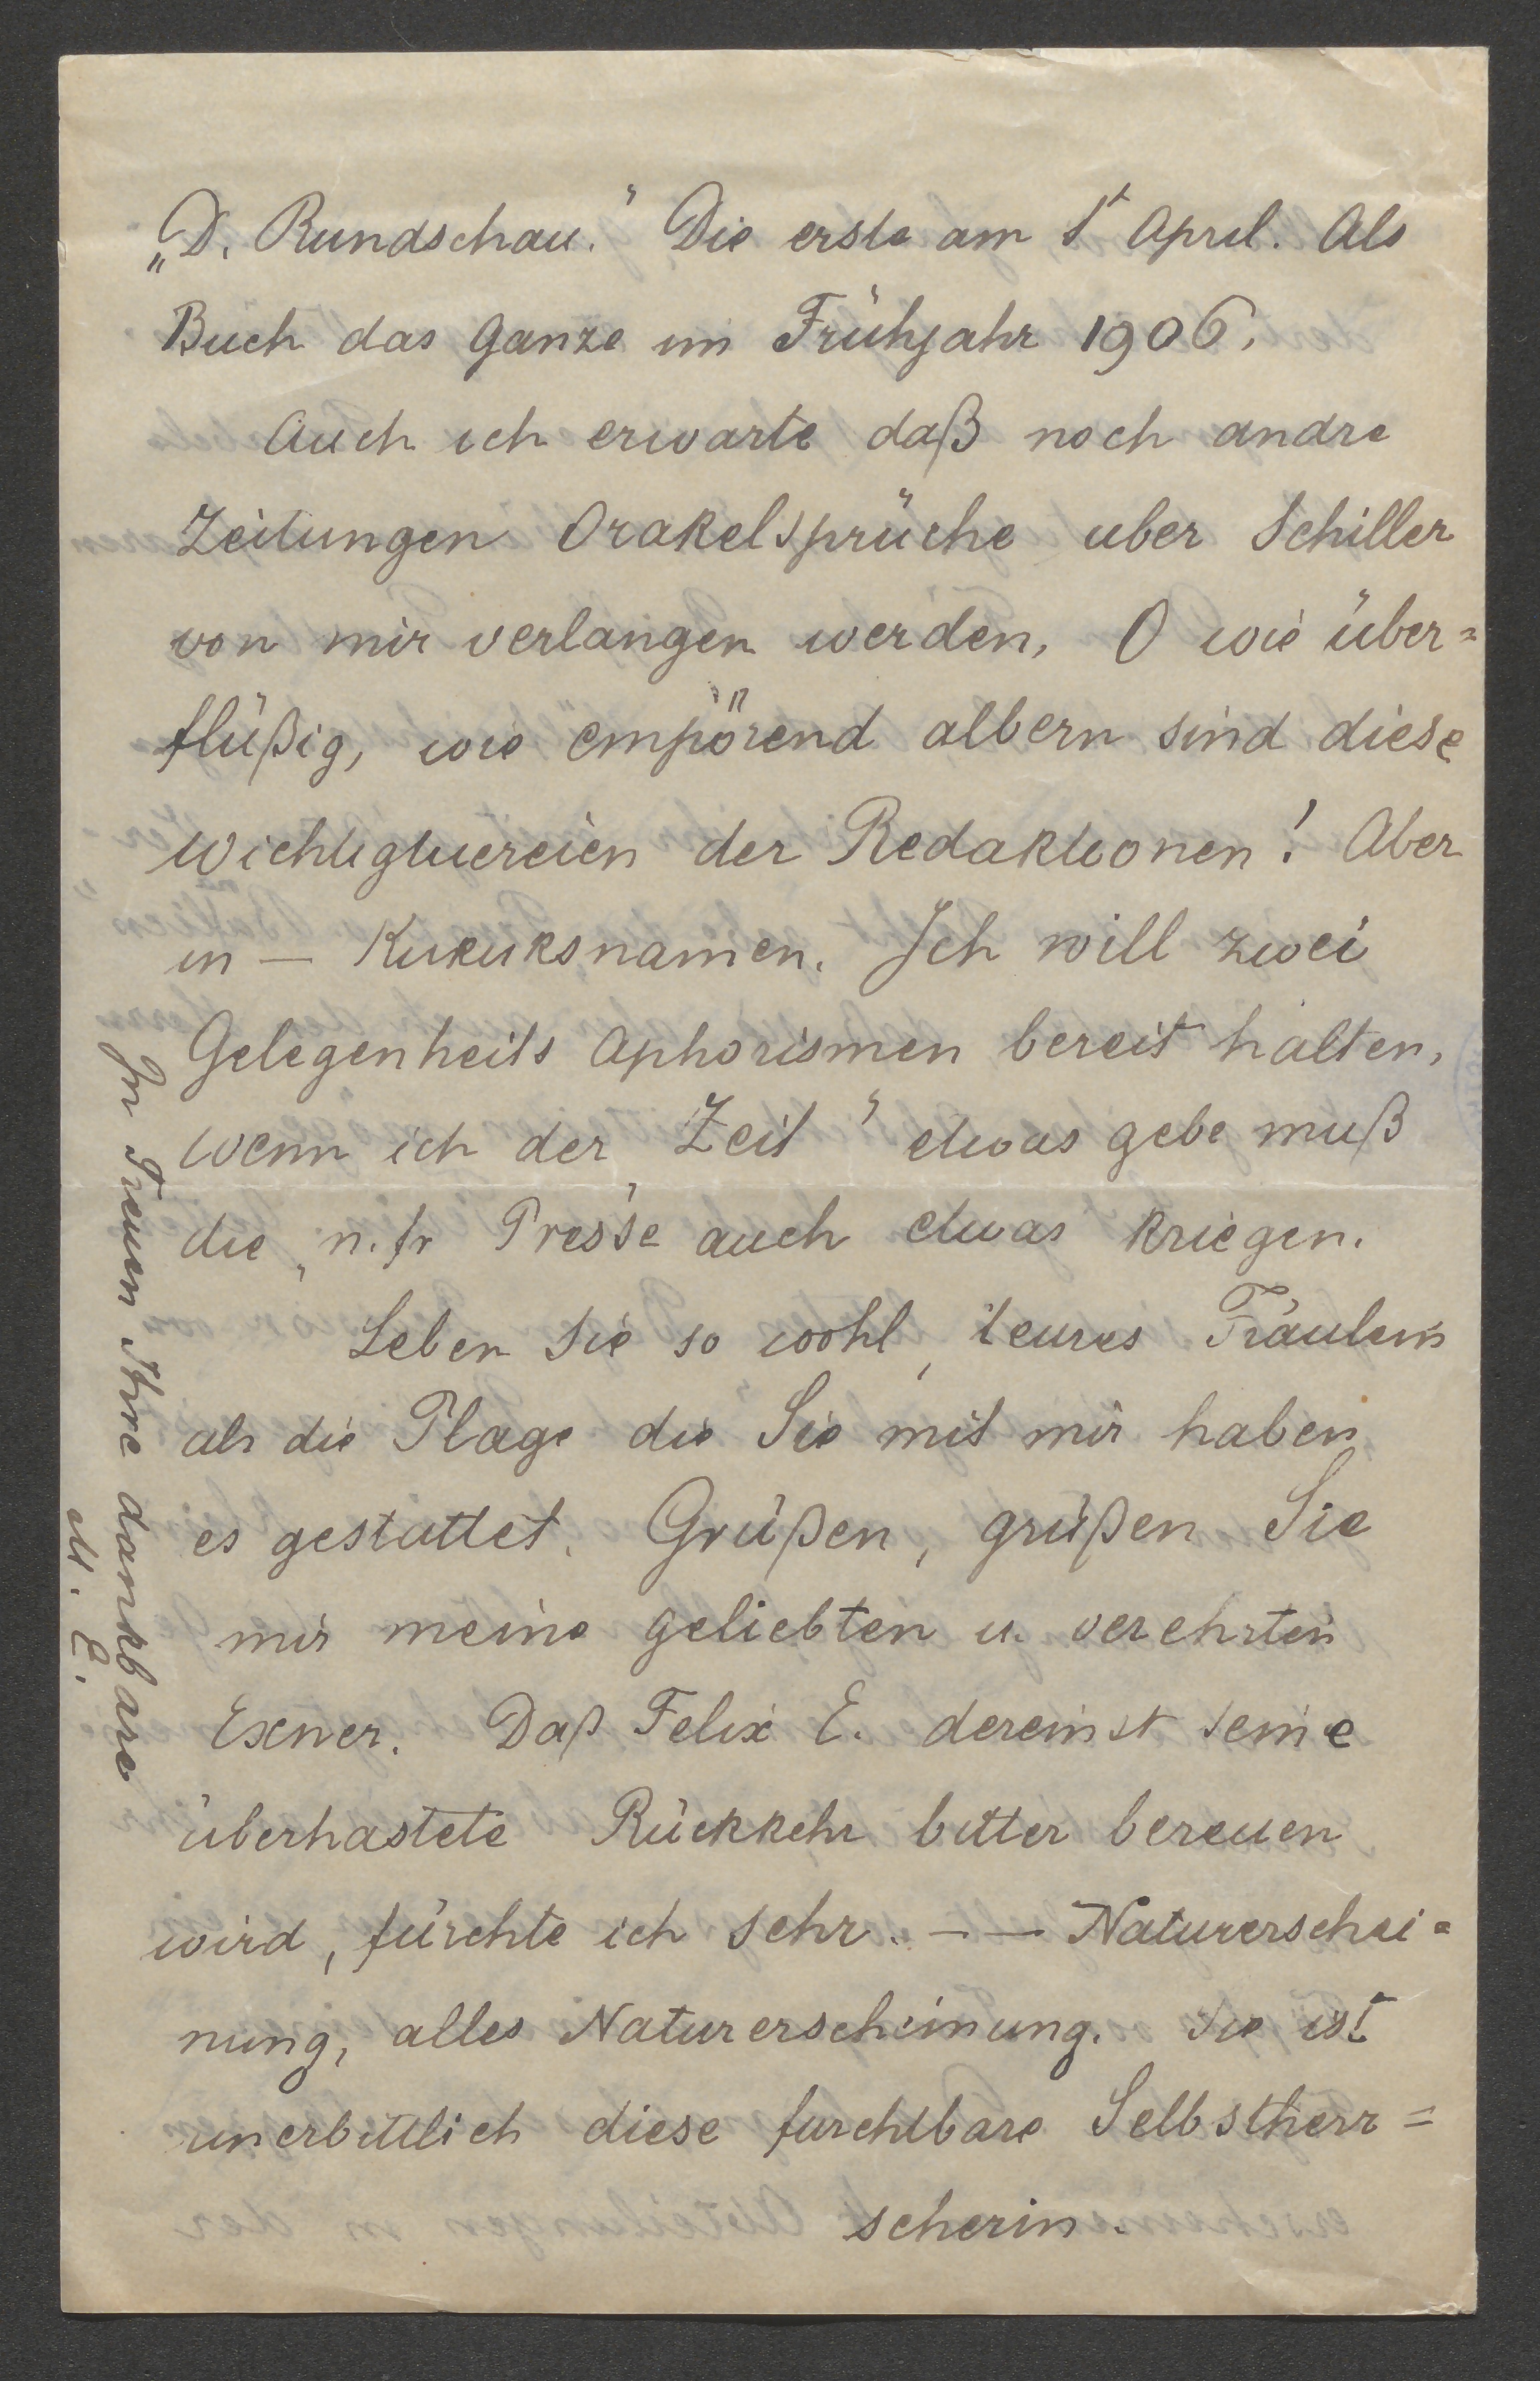 „D. Rundschau." Die erste am 1t April. Als
Buch das Ganze im Frühjahr 1906.
Auch ich erwarte daß noch andre
Zeitungen Orakelsprüche uber Schiller
von mir verlangen werden. O wie über=
flüßig, wie empörend albern sind diese
Wichtigtuereien der Redaktionen! Aber
in — Kukuksnamen. Ich will zwei
Gelegenheits Aphorismen bereit halten,
wenn ich der Zeit" etwas gebe muß
die „n. fr Presse" auch etwas kriegen.
Leben Sie so wohl, teures Fräulein
als die Plage die Sie mit mir haben
es gestattet. Grüßen, grüßen Sie
mir meine geliebten u. verehrten
Exner. Daß Felix E. dereinst seine
überhastete Rückkehr bitter bereuen
wird, fürchte ich sehr. — — Naturerschei=
nung, alles Naturerscheinung. Sie ist
unerbittlich diese furchtbare Selbstherr=
scherin.
In Treuen Ihre dankbare
M. E.